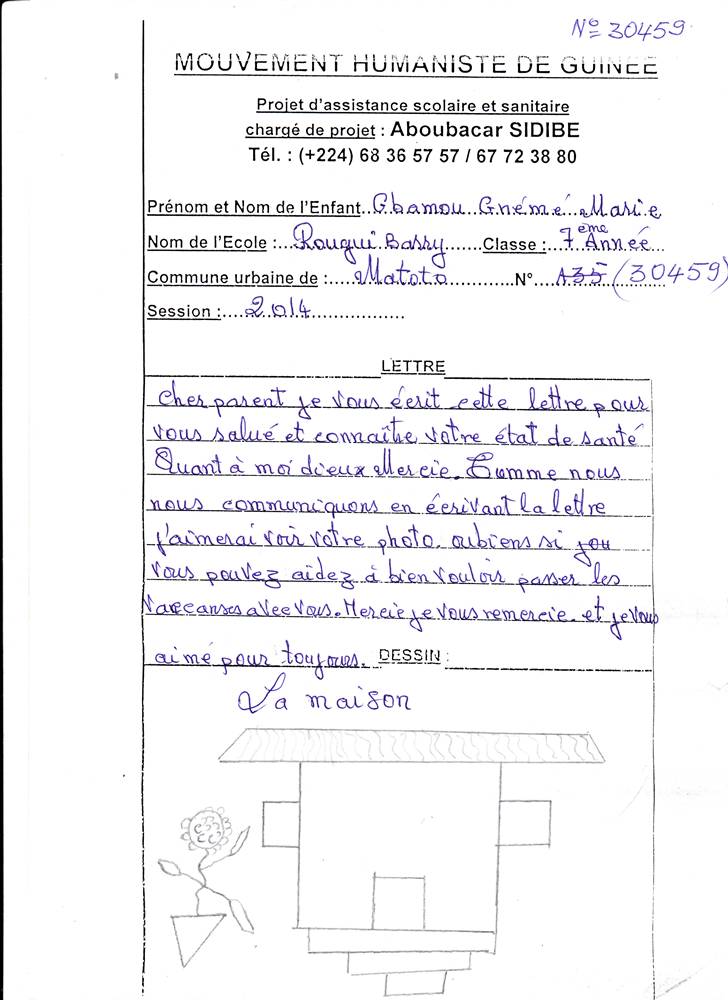 N° 30459
MOUVEMENT HUMANISTE DE GUINEE
Projet d'assistance scolaire et sanitaire
chargé de projet : Aboubacar SIDIBE
Tél. : (+224) 68 36 57 57 / 67 72 38 80
Prénom et Nom de l'Enfant..Gbamou..Gnémé..Marie
Nom de l'Ecole :...Rougui.Barry.......Classe :..7ème Année...
Commune urbaine de :.....Matoto..............N°....A35 (30459)
Session :....2014..................
LETTRE
cher parent je vous écrit cette lettre pour
vous salué et connaître votre état de santé
Quant à moi dieux Mercie. Comme nous
nous communiquons en écrivant la lettre
j'aimerai voir votre photo. oubiens si you
vous pouvez aidez à bien vouloir passer les
vaccanses avec vous. Mercie je vous remercie. et je vous
aimé pour toujours. DESSIN :
La maison